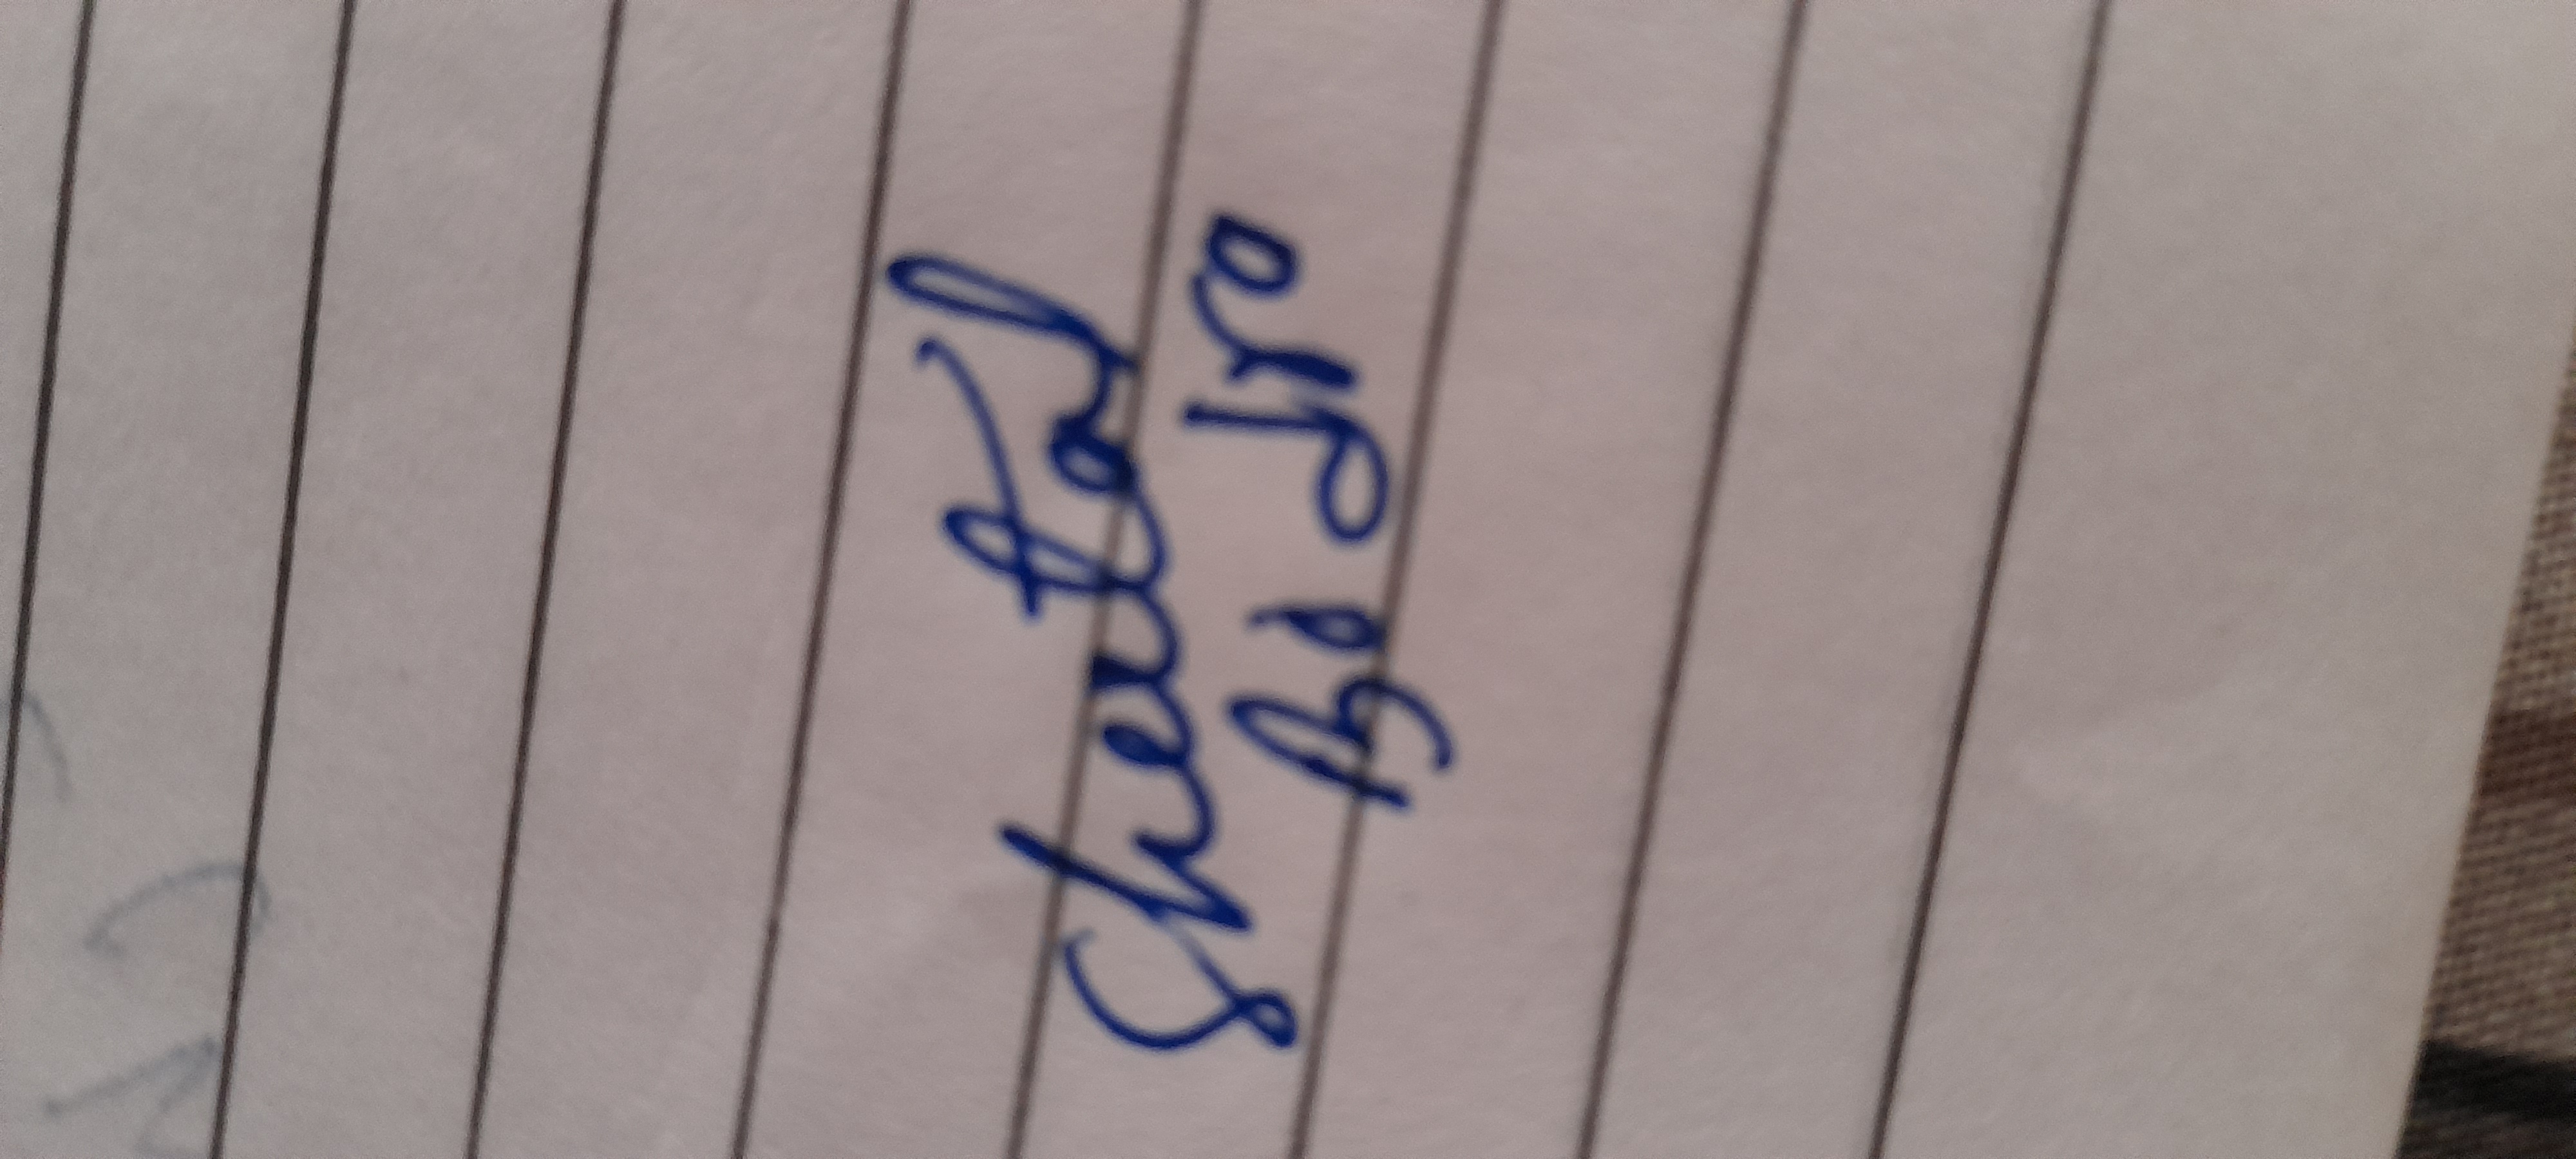 Sheetal
Bodro